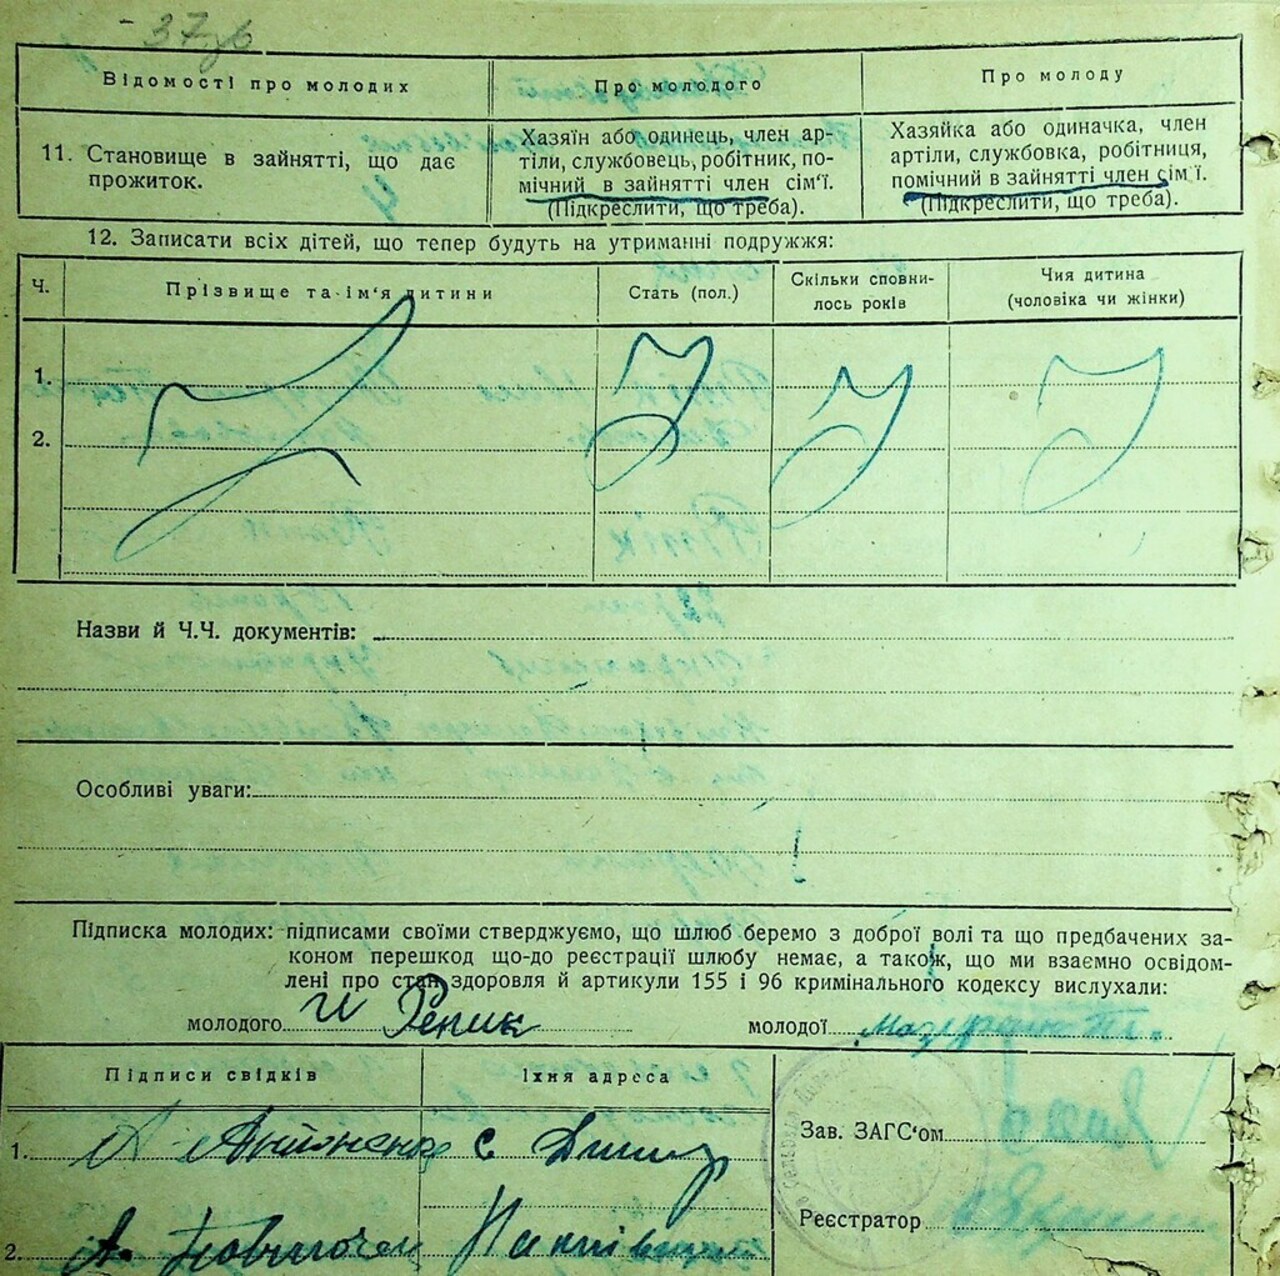 37
Відомості про молодих
Про молодого
Про молоду
11. Становище в зайнятті, що дає
прожиток.
Хазяїн або одинець, член ар-
тіли, службовець, робітник, по-
мічний в зайнятті член сім'ї.
(Підкреслити, що треба).
Хазяйка або одиначка, член
артіли, службовка, робітниця,
помічний в зайнятті член сім'ї.
(Підкреслити, що треба).
12. Записати всіх дітей, що тепер будуть на утриманні подружжя:
Ч.
Прізвище та ім'я дитини
Стать (пол.)
Скільки сповни-
лось років
Чия дитина
(чоловіка чи жінки)
1.
2.
Назви й Ч.Ч. документів:
Особливі уваги:
Підписка молодих: підписами своїми стверджуємо, що шлюб беремо з доброї волі та що предбачених за-
коном перешкод що-до реєстрації шлюбу немає, а також, що ми взаємно освідом-
лені про стан здоровля й артикули 155 і 96 кримінального кодексу вислухали:
молодого И Репик молодої
Підписи свідків
Їхня адреса
1. А Антоненко с
2. А.
Зав. ЗАГС'ом
Реєстратор